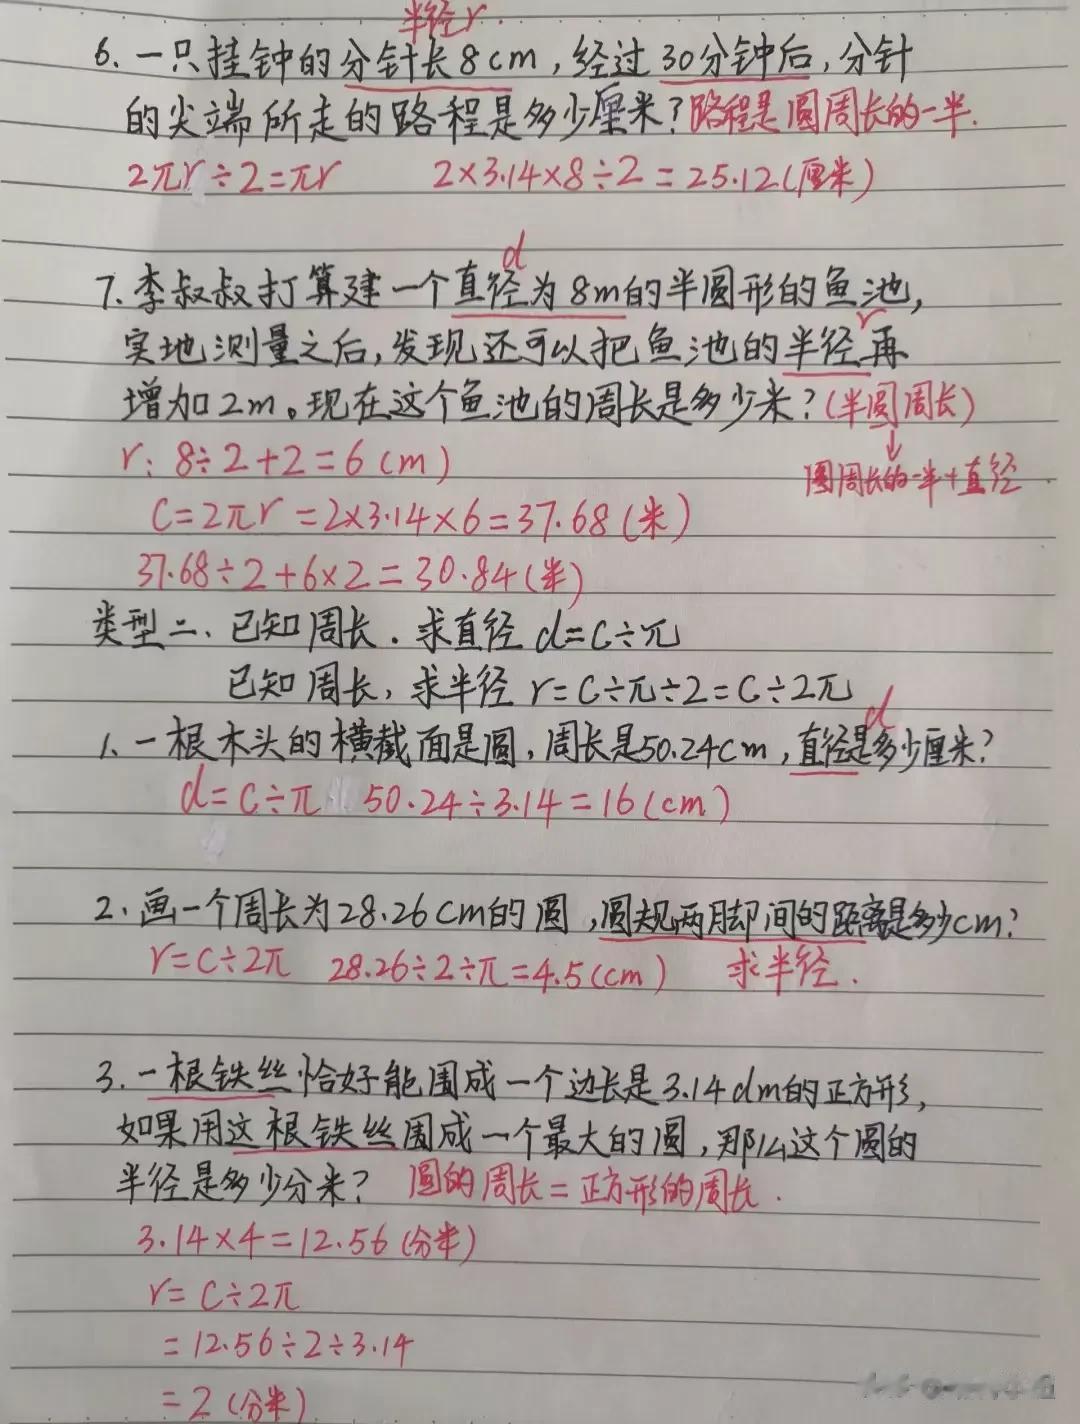 半径r.
6. 一只挂钟的分针长8cm,经过30分钟后,分针
的尖端所走的路程是多少厘米?路程是圆周长的一半.
2πr÷2=πr 2×3.14×8÷2=25.12(厘米)
d
7. 李叔叔打算建一个直径为8m的半圆形的鱼池,
r
实地测量之后,发现还可以把鱼池的半径再
增加2m。现在这个鱼池的周长是多少米?(半圆周长)
↓
r: 8÷2+2=6(m) 圆周长的一半+直径
C=2πr=2×3.14×6=37.68(米)
37.68÷2+6×2=30.84(米)
类型二、已知周长.求直径 d=C÷π
已知周长,求半径 r=C÷π÷2=C÷2π
d
1. 一根木头的横截面是圆,周长是50.24cm,直径是多少厘米?
d=C÷π 50.24÷3.14=16(cm)
2. 画一个周长为28.26cm的圆,圆规两脚间的距离是多少cm?
r=C÷2π 28.26÷2÷π=4.5(cm) 求半径.
3. 一根铁丝恰好能围成一个边长是3.14dm的正方形,
如果用这根铁丝围成一个最大的圆,那么这个圆的
半径是多少分米? 圆的周长=正方形的周长.
3.14×4=12.56(分米)
r=C÷2π
=12.56÷2÷3.14
=2(分米)